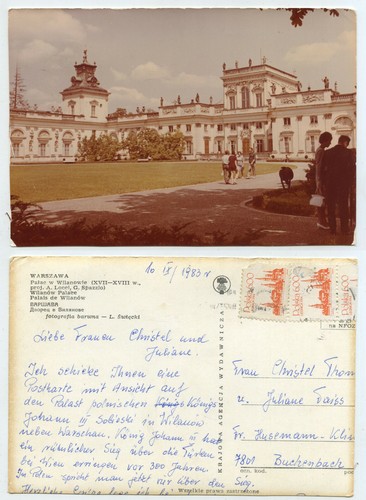 10 IX / 1983 r
WARSZAWA
Pałac w Wilanowie (XVII—XVIII w.,
proj. A. Locci, G. Spazzio)
Wilanów Palace
Palais de Wilanów
ВАРШАВА
Дворец в Вилянове
fotografia barwna — L. Święcki
Liebe Frauen Christel und
Juliane.
Ich schicke Ihnen eine
Postkarte mit Ansicht auf
den Palast polnischen Königs
Johann III Sobieski in Wilanów
neben Warschau. König Johann III hat
ein rühmlicher Sieg über die Türken
bei Wien errungen vor 300 Jahren.
In Polen spricht man jetzt nur über den Sieg.
KRAJOWA AGENCJA WYDAWNICZA
Polska 6 zł
Polska 6 zł
na NFOZ
Frau Christel Thom
u. Juliane
Dr. Husemann-Klin
7801 Buchenbach
Wszelkie prawa zastrzeżone